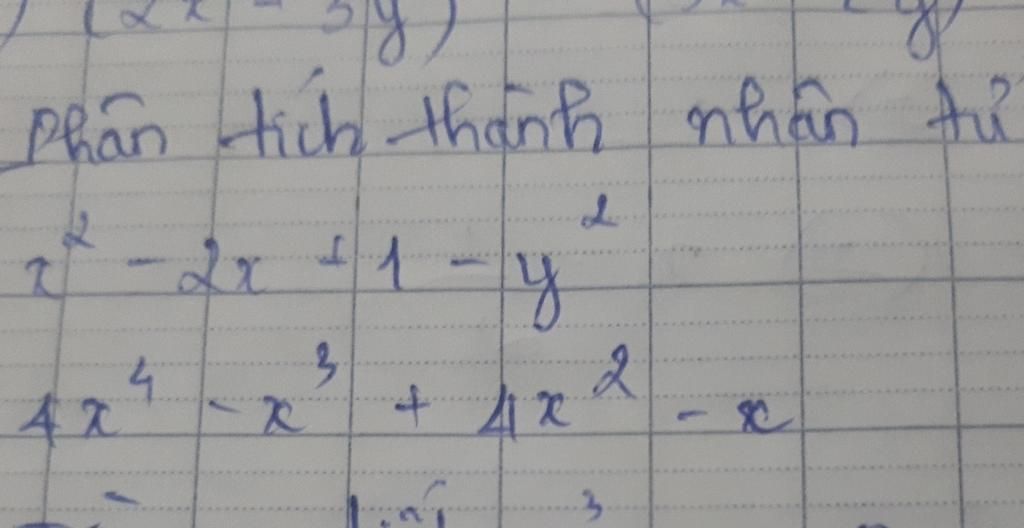 ) (2x - 3y)
Phân tích thành nhân tử
x² - 2x + 1 - y²
4x⁴ - x³ + 4x² - x